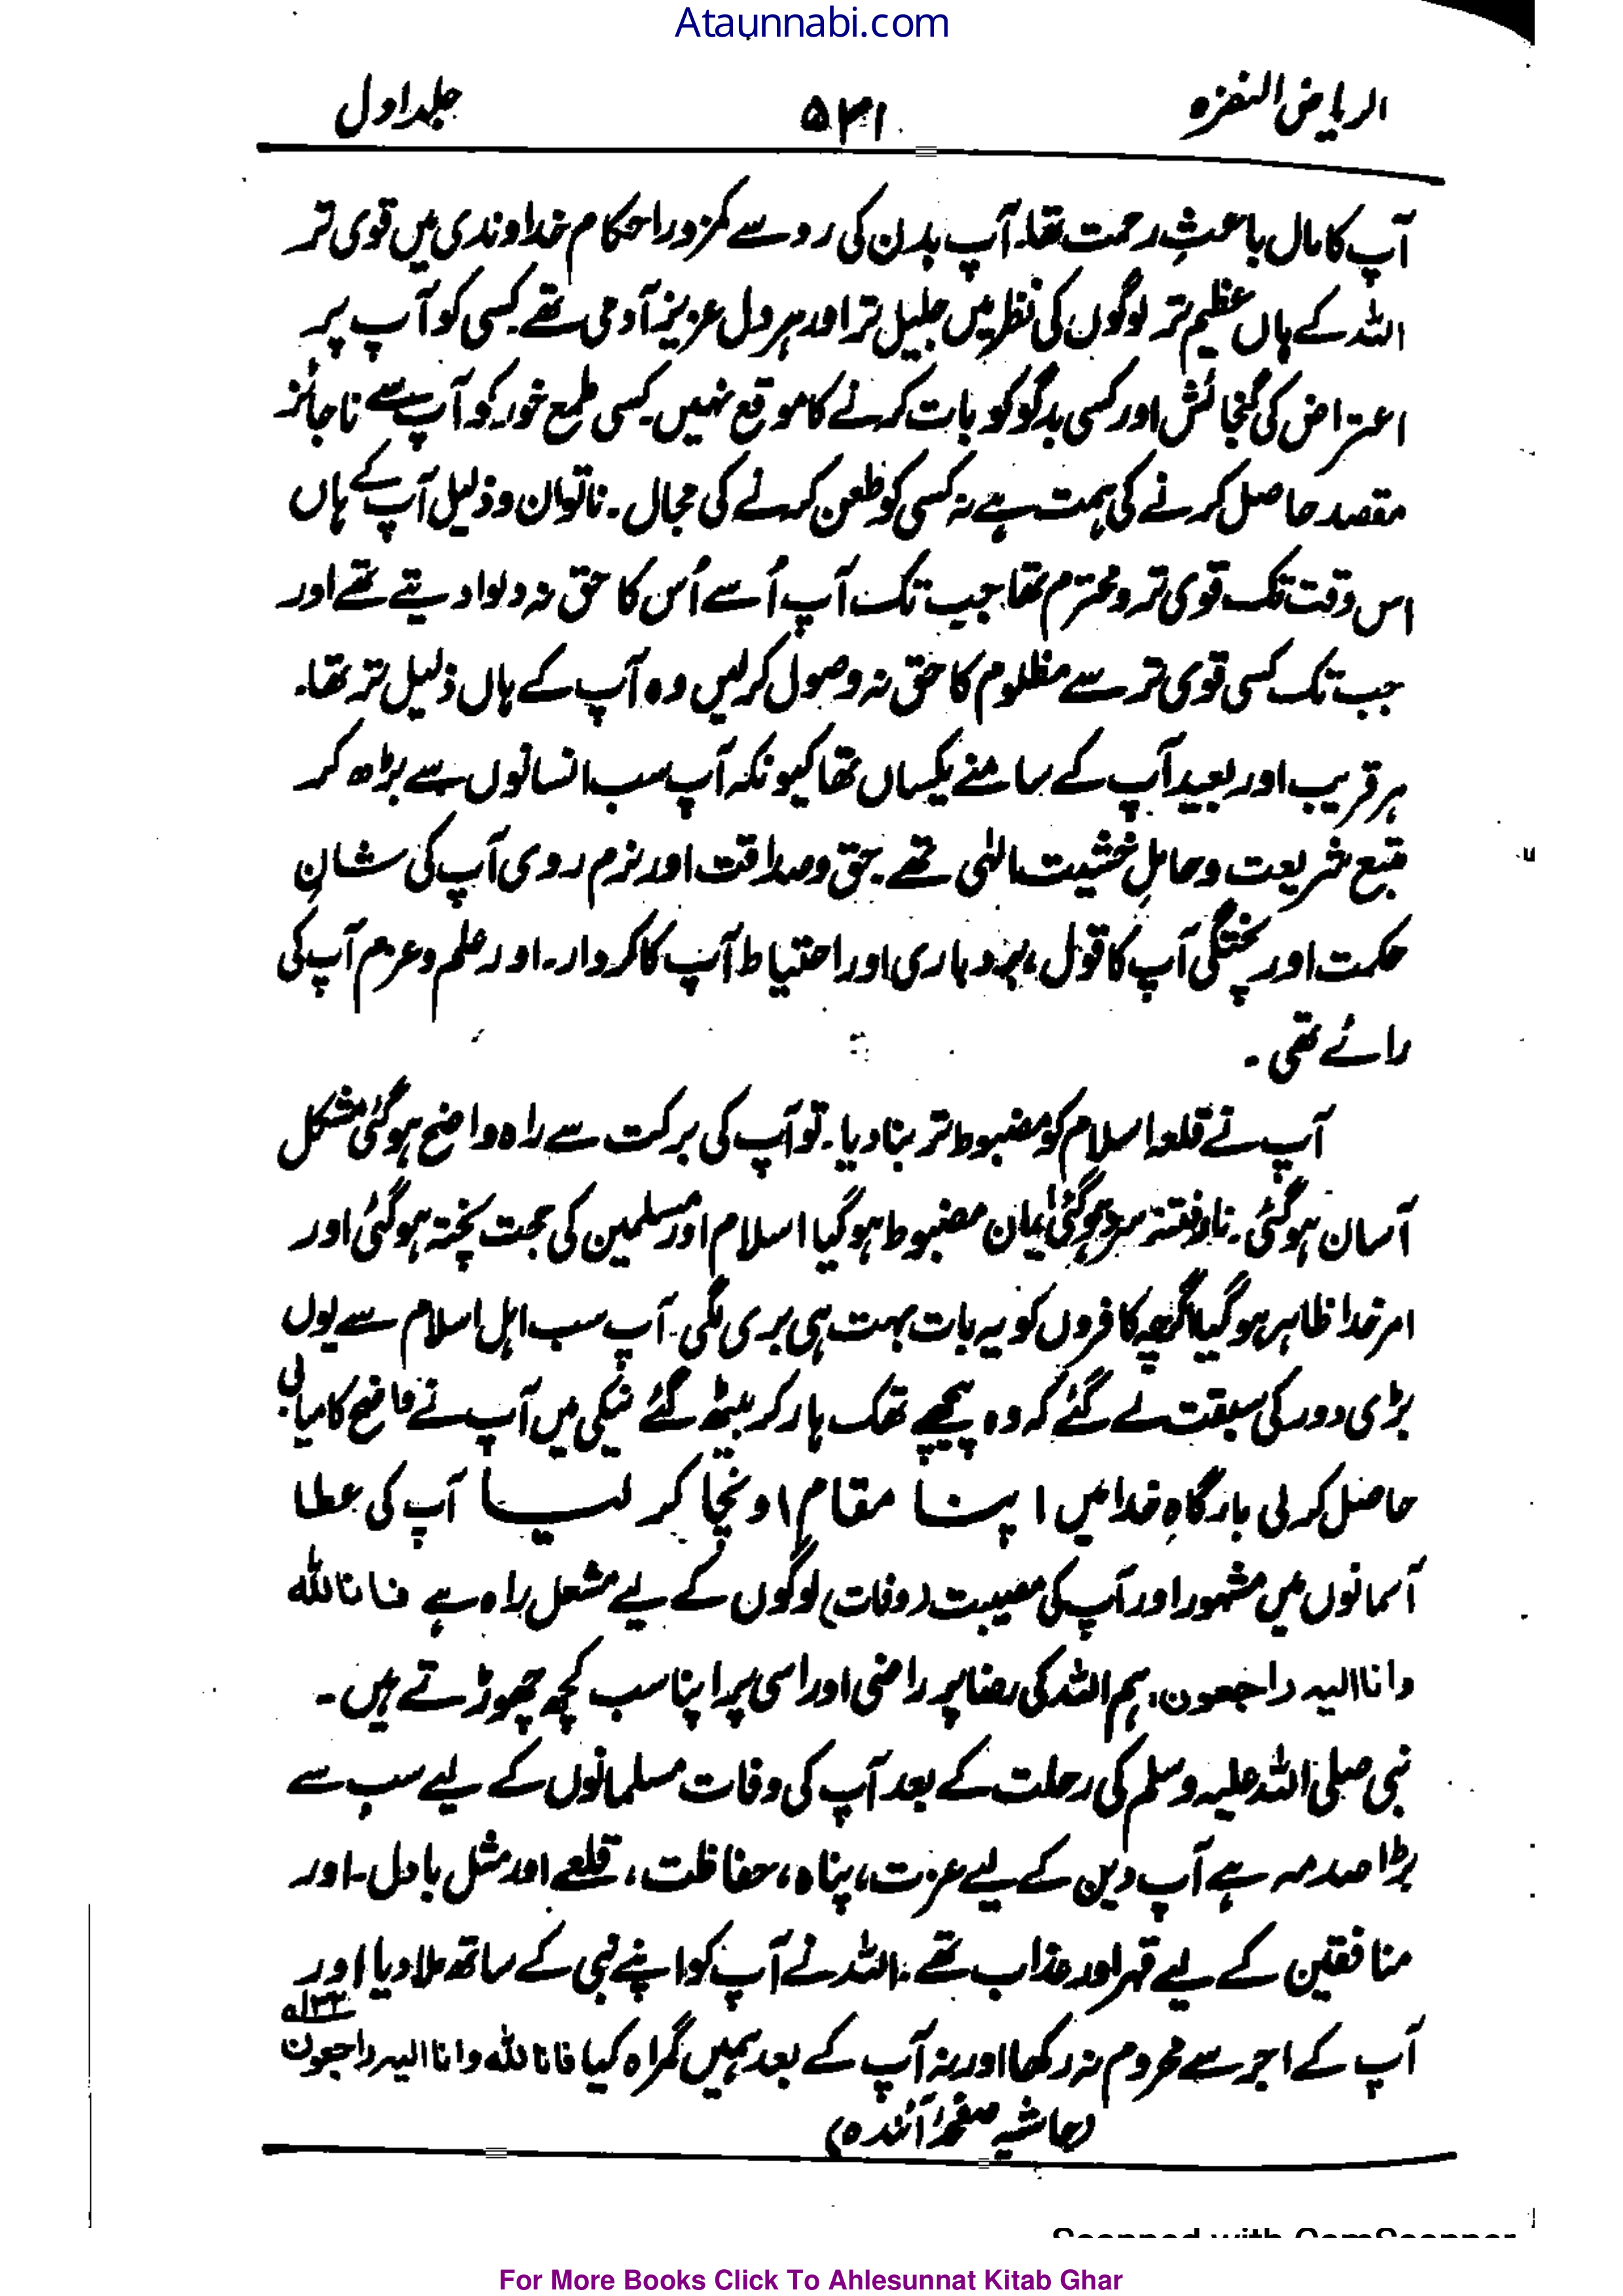 Ataunnabi.com
الریاض النضرہ ۵۳۱ جلد اول
آپ کا مال باعثِ رحمت تھا۔ آپ بدن کی رو سے کمزور احکام خداوندی میں قوی تر
اللہ کے ہاں عظیم تر لوگوں کی نظر میں جلیل تر اور ہر دل عزیز آدمی تھے۔ کسی کو آپ پر
اعتراض کی گنجائش اور کسی بدگو کو بات کرنے کا موقع نہیں۔ کسی طمع خور کو آپ سے ناجائز
مقصد حاصل کرنے کی ہمت ہے نہ کسی کو طعن کرنے کی مجال۔ ناتوان و ذلیل آپ کے ہاں
اس وقت تک قوی تر و محترم تھا جب تک آپ اُسے اُس کا حق نہ دلوا دیتے تھے اور
جب تک کسی قوی تر سے مظلوم کا حق نہ وصول کرلیں وہ آپ کے ہاں ذلیل تر تھا۔
ہر قریب اور بعید آپ کے سامنے یکساں تھا کیونکہ آپ سب انسانوں سے بڑھ کر
متبع شریعت و حاملِ خشیت الٰہی تھے۔ حق و صداقت اور نرم روی آپ کی شانِ
حکمت اور پختگی آپ کا قول، بردباری اور احتیاط آپ کا کردار۔ اور علم و عزم آپ کی
رائے تھی۔
آپ نے قلعہ اسلام کو مضبوط تر بنا دیا۔ تو آپ کی برکت سے راہ واضح ہوگئی مشکل
آسان ہوگئی۔ نار فتنہ سرد ہوگئی ایمان مضبوط ہوگیا اسلام اور مسلمین کی حجت پختہ ہوگئی اور
امر خدا ظاہر ہوگیا اگرچہ کافروں کو یہ بات بہت ہی بری لگی۔ آپ سب اہل اسلام سے یوں
بڑی دور کی سبقت لے گئے کہ وہ پیچھے تھک ہار کر بیٹھ گئے نیکی میں آپ نے واضح کامیابی
حاصل کر لی بارگاہِ خدا میں اپنا مقام اونچا کر لیا آپ کی عطا
آسمانوں میں مشہور اور آپ کی مصیبت (وفات) لوگوں کے لیے مشعل راہ ہے فانا للہ
وانا الیہ راجعون، ہم اللہ کی رضا پر راضی اور اسی پر اپنا سب کچھ چھوڑتے ہیں۔
نبی صلی اللہ علیہ وسلم کی رحلت کے بعد آپ کی وفات مسلمانوں کے لیے سب سے
بڑا صدمہ ہے آپ دین کے لیے عزت، پناہ، حفاظت، قلعے اور مثل بادل۔ اور
منافقین کے لیے قہر اور عذاب تھے۔ اللہ نے آپ کو اپنے نبی کے ساتھ ملا دیا اور
آپ کے اجر سے محروم نہ رکھا اور نہ آپ کے بعد ہمیں گمراہ کیا فانا للہ وانا الیہ راجعون
(حاشیہ صفحہ آئندہ)
Scanned with CamScanner
For More Books Click To Ahlesunnat Kitab Ghar